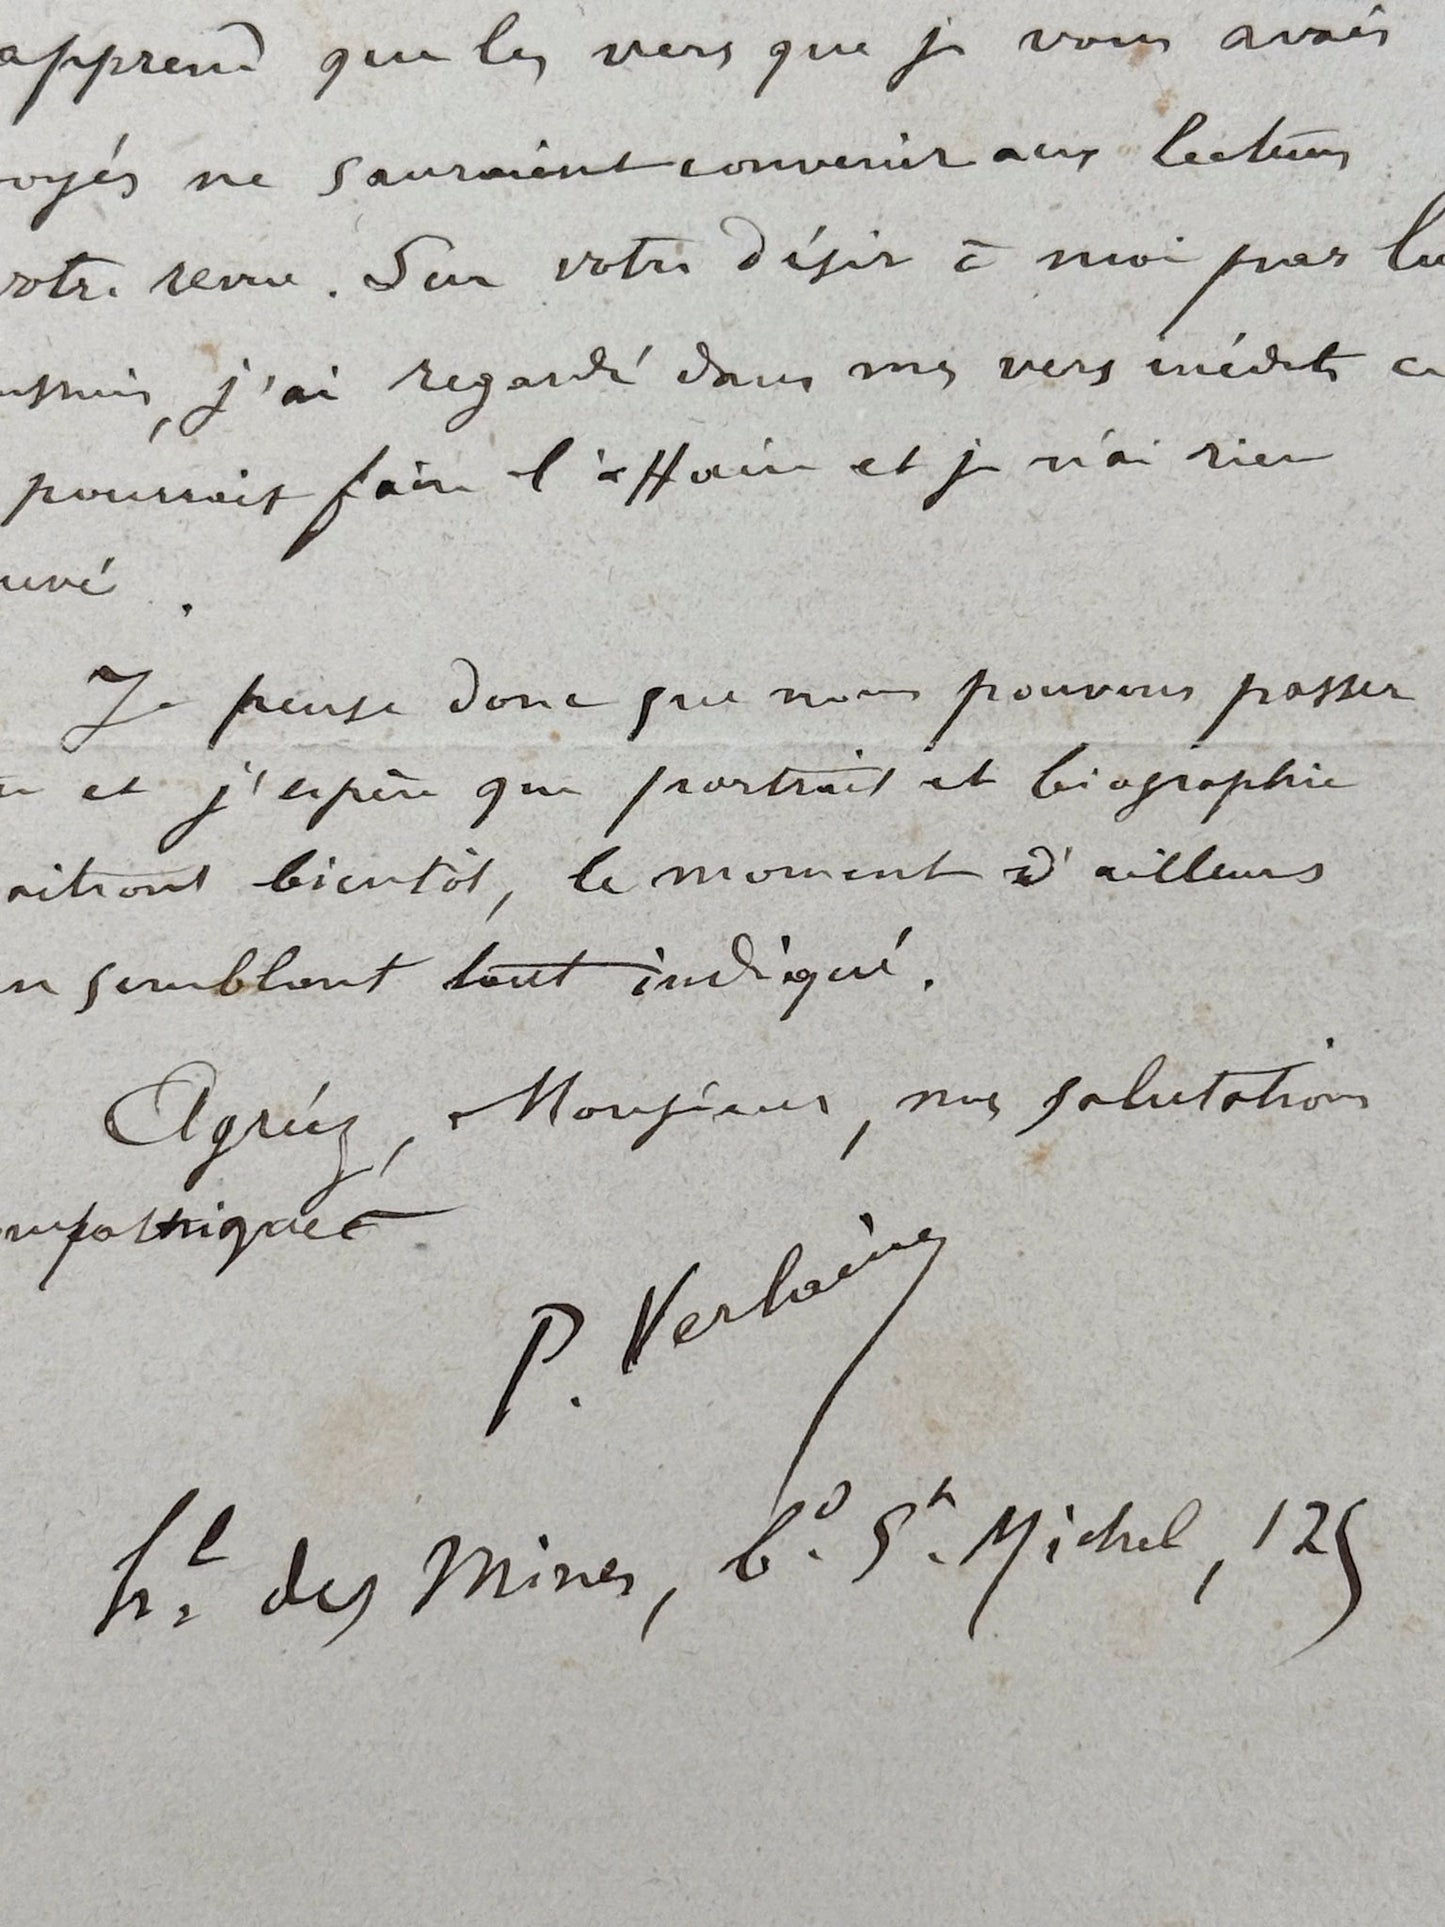 apprend que les vers que je vous avais
voyés ne sauraient convenir aux lecteurs
votre revue. Sur votre désir à moi par lu
ansmis, j'ai regardé dans mes vers inédits ce
pourrait faire l'affaire et je n'ai rien
ouvé.
Je pense donc que nous pouvons passer
et j'espère que portrait et biographie
aîtront bientôt, le moment d'ailleurs
en semblant tout indiqué.
Agréez, Monsieur, mes salutations
mpathiques
P. Verlaine
hl. des Mines, bd. St. Michel, 125